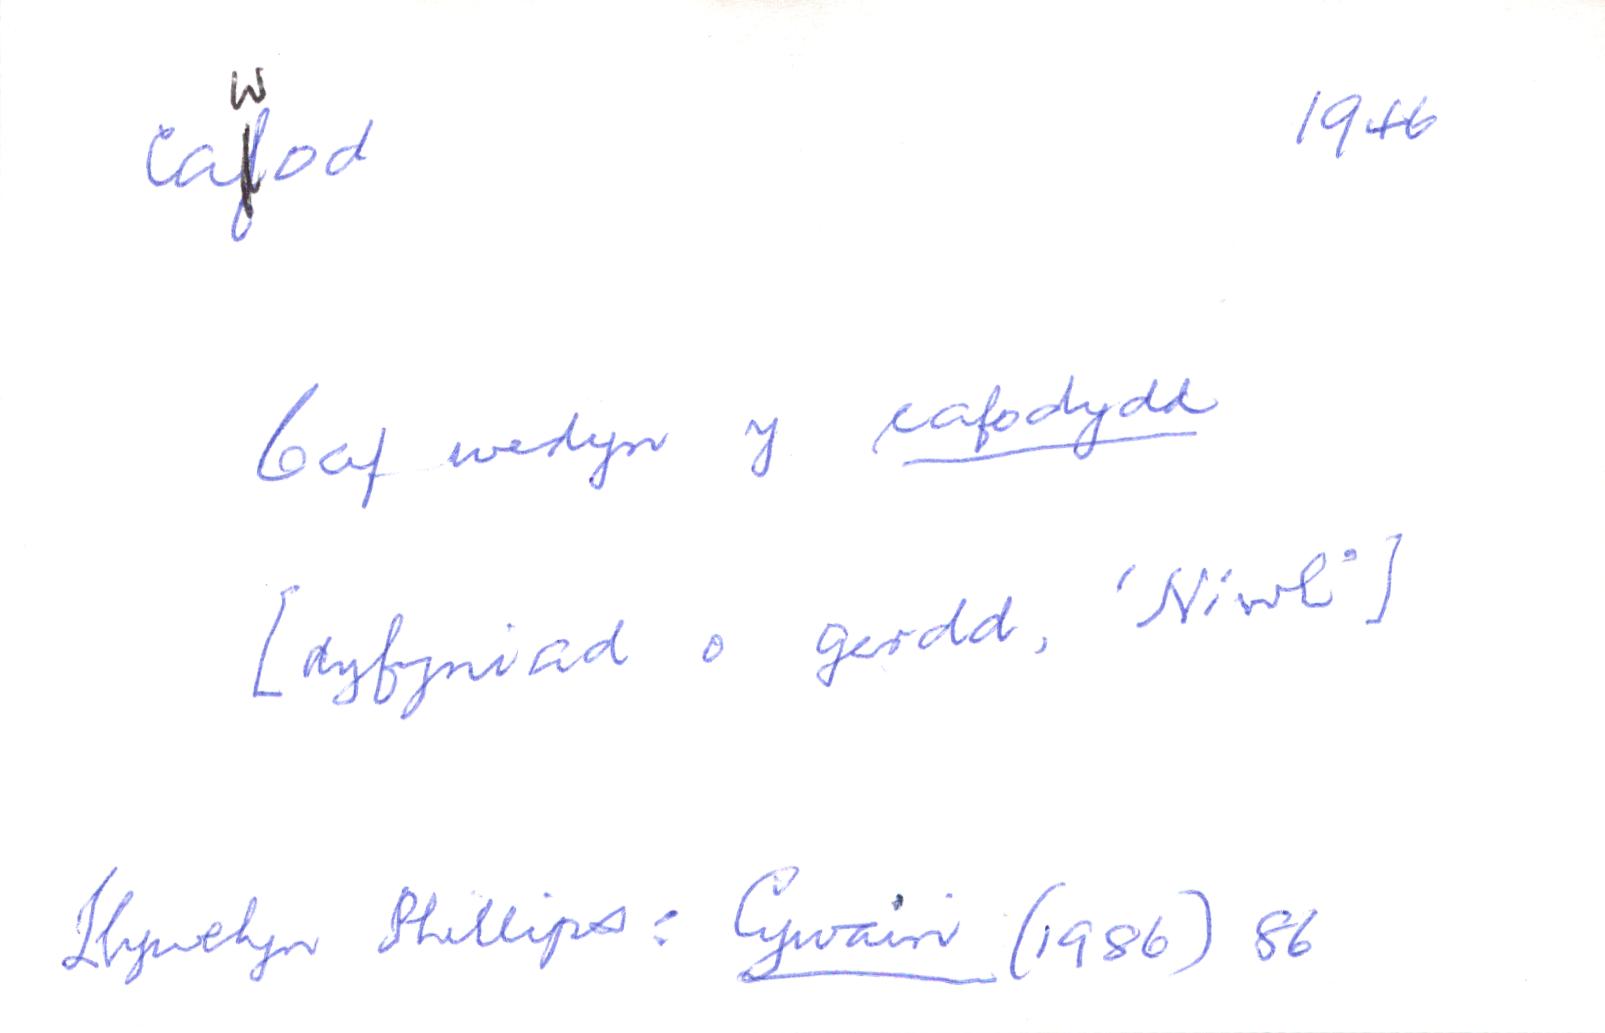 cawod 1946
Caf wedyn y cafodydd
[dyfyniad o gerdd, 'Niwl']
Llywelyn Phillips: Cywain (1986) 86